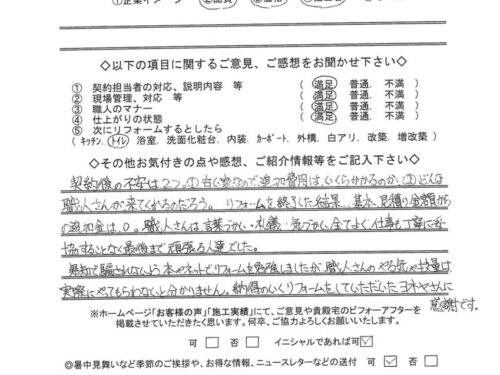 ①企業イメージ ②品質 ③価格
◇以下の項目に関するご意見、ご感想をお聞かせ下さい◇
① 契約担当者の対応、説明内容 等 ( 満足 普通. 不満 )
② 現場管理、対応 等 ( 満足 普通. 不満 )
③ 職人のマナー ( 満足 普通. 不満 )
④ 仕上がりの状態 ( 満足 普通. 不満 )
⑤ 次にリフォームするとしたら
( キッチン. トイレ 浴室. 洗面化粧台. 内装. カーポート. 外構. 白アリ. 改築. 増改築 )
◇その他お気付きの点や感想、ご紹介情報等をご記入下さい◇
契約後の不安は2つ。①古い家なので追加費用は、いくらかかるのか、②どんな
職人さんが来てくれるのだろう。リフォームを終了した結果、基本、見積り金額から
の追加金は、0。職人さんは言葉づかい・礼儀・気づかい、全てよく仕事も丁寧に妥
協することなく最後まで頑張る人達でした。
無知で騙されないよう本やネットでリフォームを勉強しましたが職人さんのやる気や技量は
実際にやってもらわないと分かりません。納得のいくリフォームをしていただいたヨネヤさんに
感謝です。
※ホームページ「お客様の声」「施工実績」にて、ご意見や貴殿宅のビフォーアフターを
掲載させていただきたく思います。何卒、ご協力よろしくお願いいたします。
可 □ 否 □ イニシャルであれば可 ☑
◎暑中見舞いなど季節のご挨拶や、お得な情報、ニュースレターなどの送付 可 ☑ 否 □